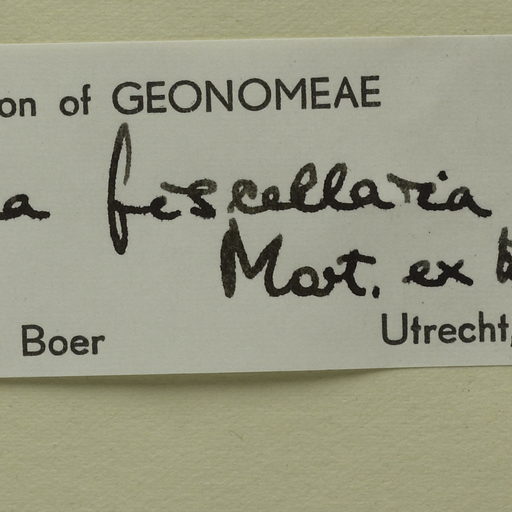 on of GEONOMEAE
a fiscellaria
Mart. ex
Boer Utrecht,